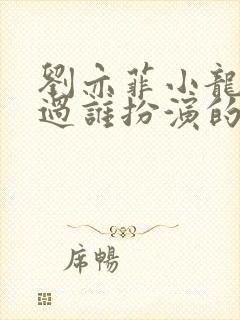 劉亦菲小龍
過誰扮演的
席暢